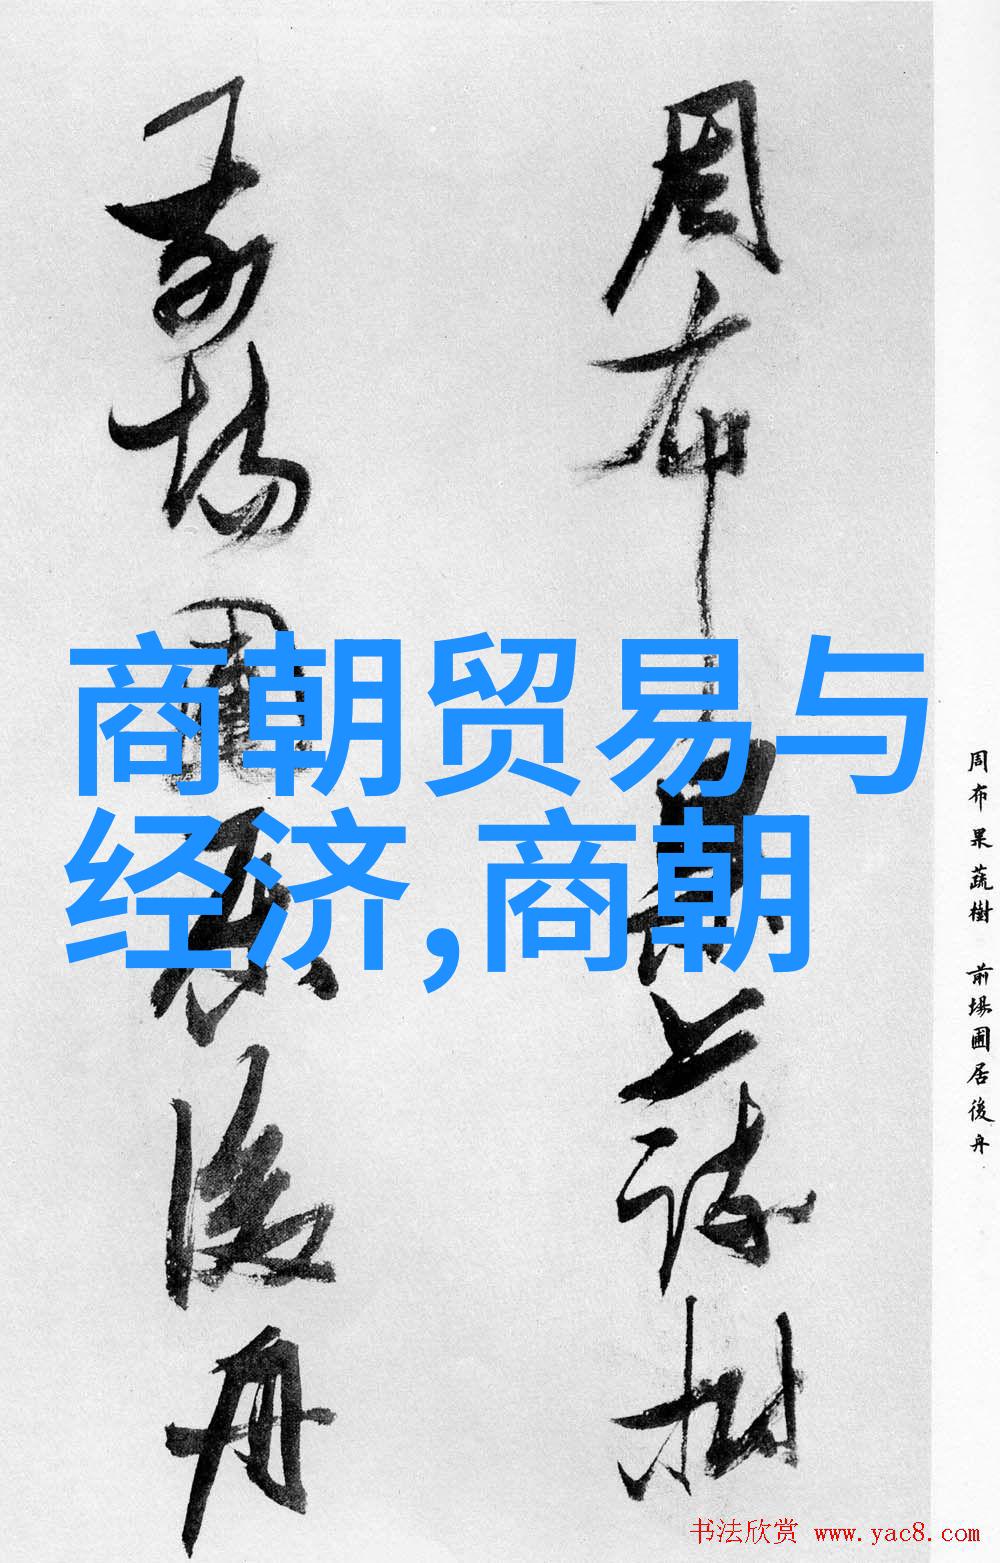 周布果蔬樹
前場圃居後舟
商朝贸易与
经济,商朝
周布果蔬樹 前場圃居後舟
书法欣赏 www.yac8.com